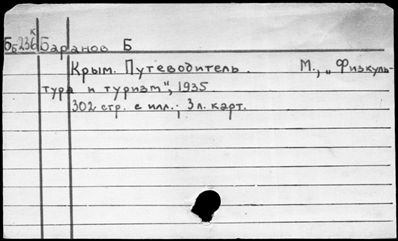 к
Бб-236 Баранов Б
Крым. Путеводитель. М., „Физкуль-
тура и туризм", 1935.
302 стр. с илл.; 3 л. карт.